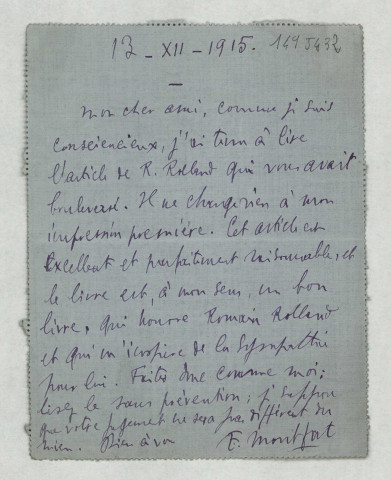 13 - XII - 1915. 1495432
mon cher ami, comme je suis
consciencieux, j'ai tenu à lire
l'article de R. Rolland qui vous avait
bouleversé. Il ne change rien à mon
impression première. Cet article est
excellent et parfaitement raisonnable, et
le livre est, à mon sens, un bon
livre, qui honore Romain Rolland
et qui m'inspire de la sympathie
pour lui. Faites donc comme moi ;
lisez le sans prévention ; je suppose
que votre jugement ne sera pas différent du
mien. Bien à vous
E. Montfort